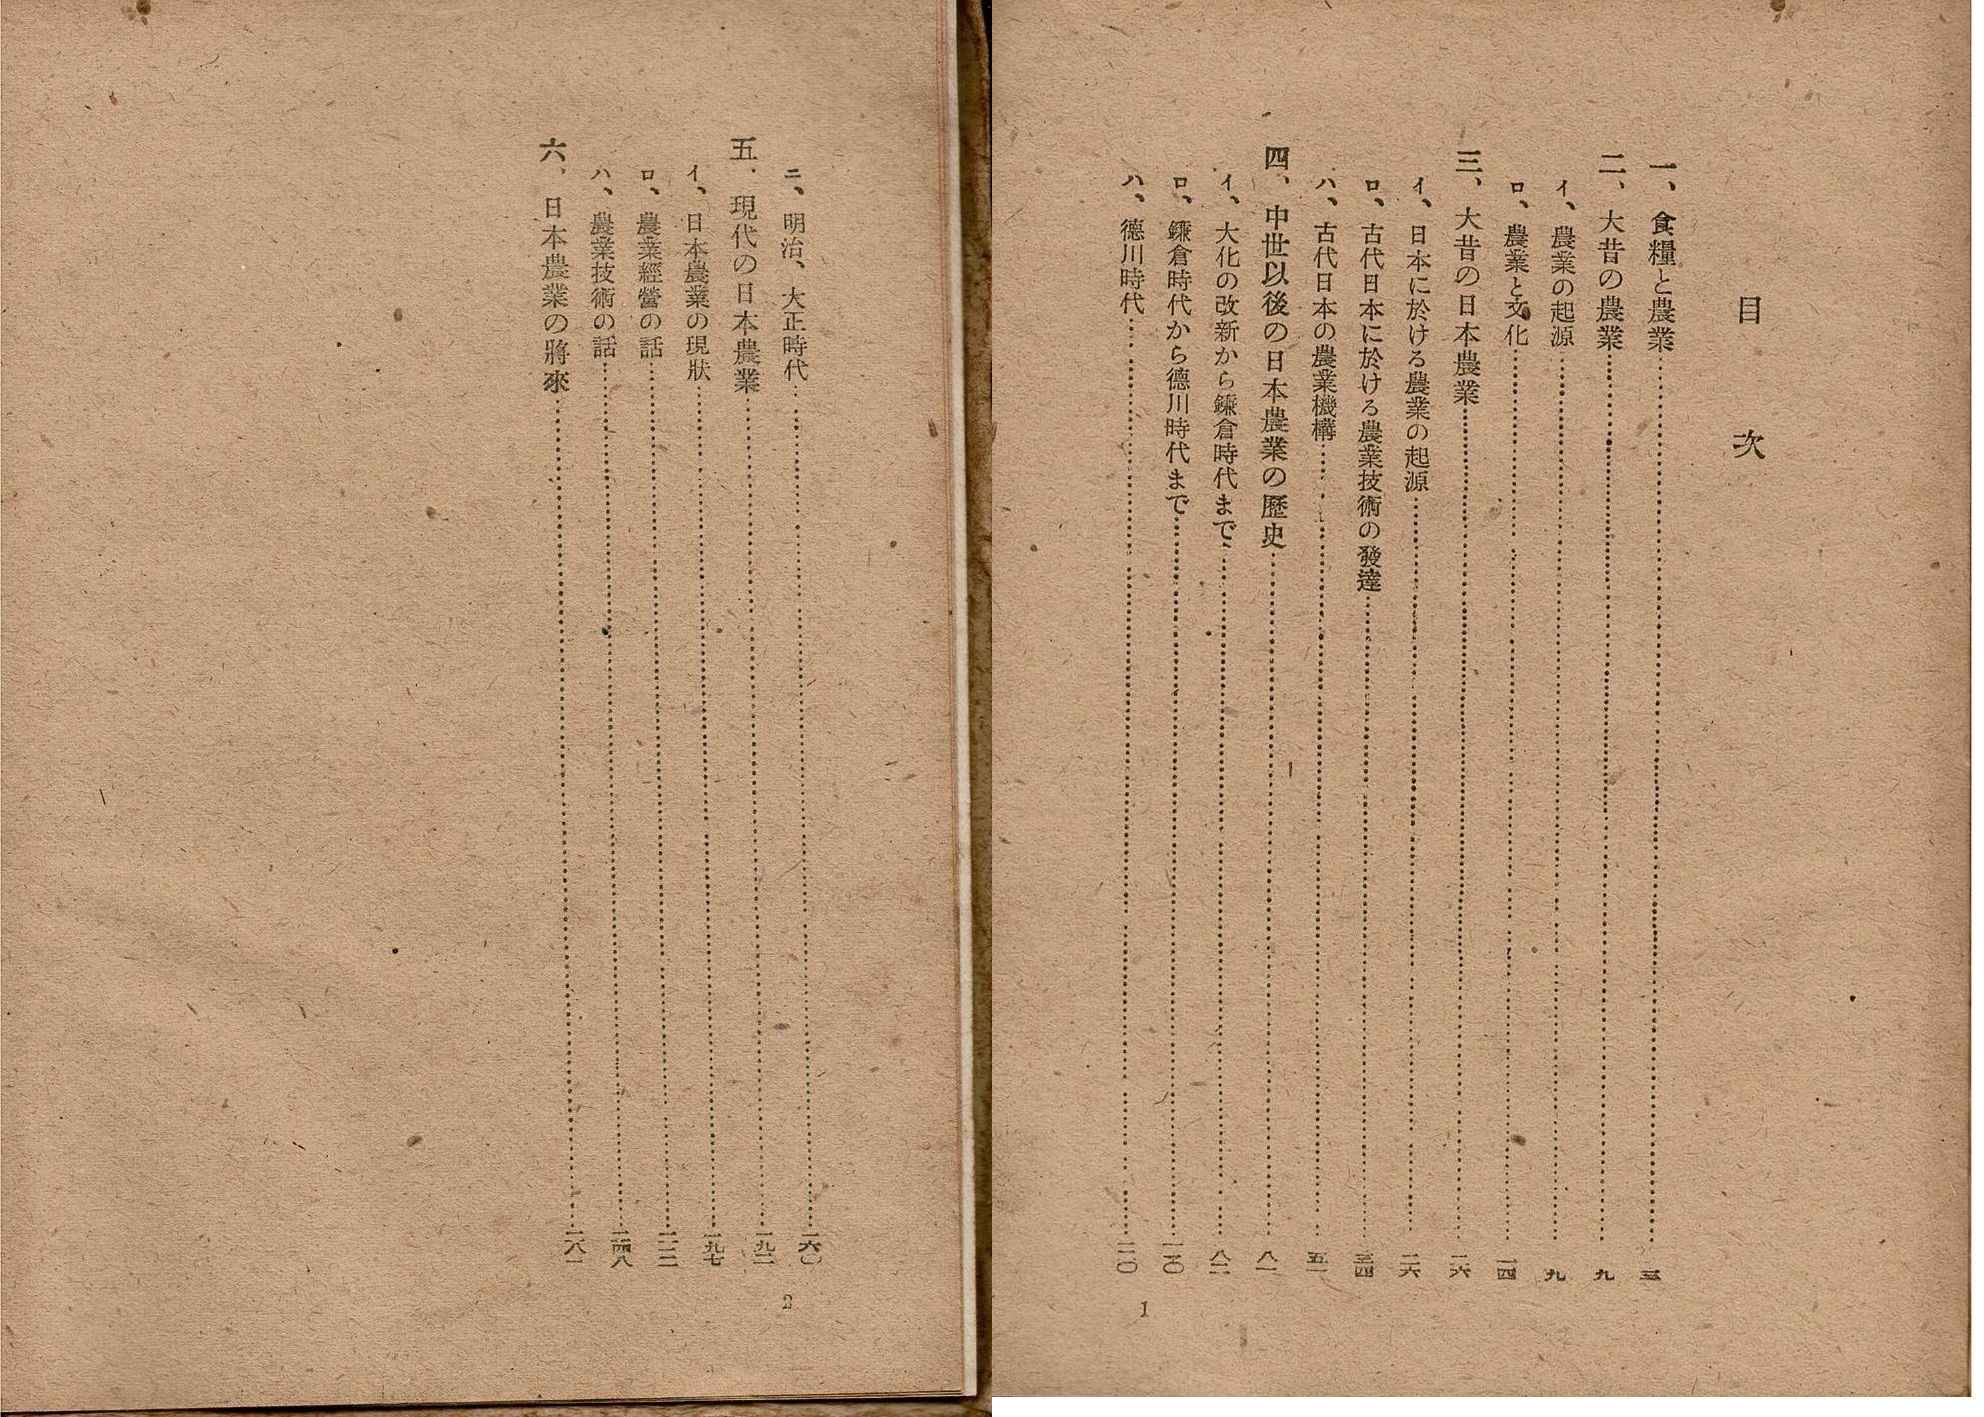 目次
一、食糧と農業……三
二、大昔の農業……九
イ、農業の起源……九
ロ、農業と文化……一四
三、大昔の日本農業……二六
イ、日本に於ける農業の起源……二六
ロ、古代日本に於ける農業技術の發達……三四
ハ、古代日本の農業機構……五一
四、中世以後の日本農業の歷史……八一
イ、大化の改新から鎌倉時代まで……八二
ロ、鎌倉時代から德川時代まで……
ハ、德川時代……
1
ニ、明治、大正時代……一六〇
五、現代の日本農業……一九二
イ、日本農業の現狀……一九七
ロ、農業經營の話……
ハ、農業技術の話……二四八
六、日本農業の將來……二八一
2